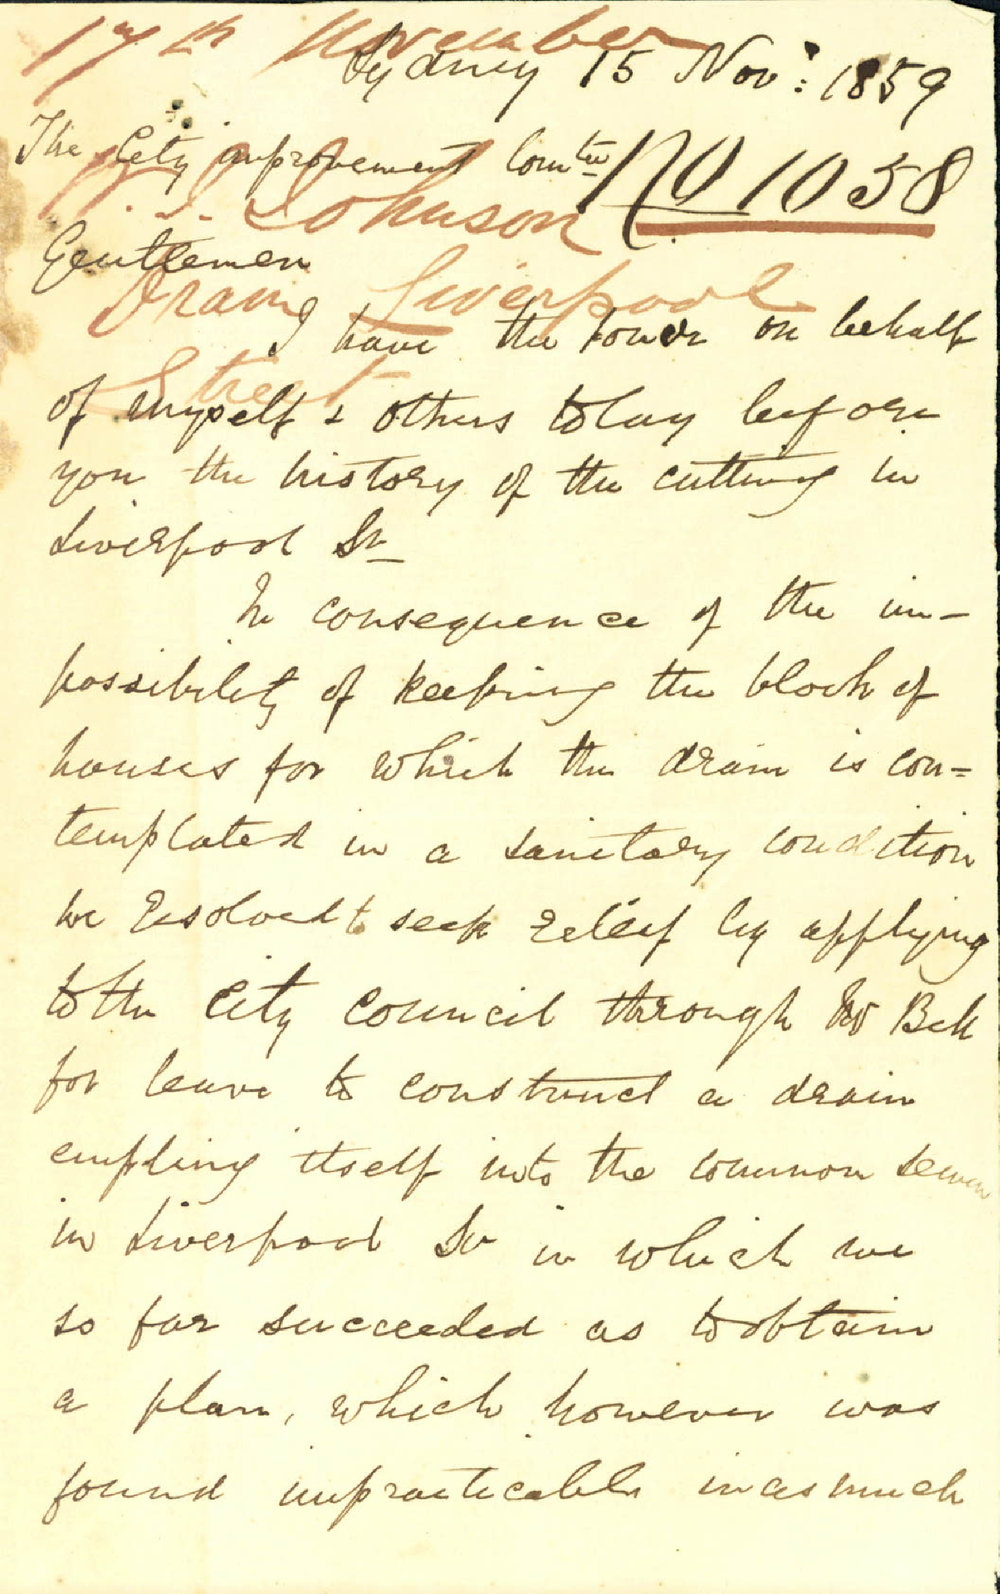 17th November
Sydney 15 Nov: 1859
The City improvement Comtee
No 1058
Johnson
Gentlemen
Drain Liverpool
I have the honor on behalf
Street
of myself & others to lay before
you the history of the cutting in
Liverpool St
In consequence of the im-
possibility of keeping the block of
houses for which the drain is con=
templated in a sanitary condition
we resolved to seek relief by applying
to the City Council through Mr Bell
for leave to construct a drain
emptying itself into the common sewer
in Liverpool St in which we
so far succeeded as to obtain
a plan, which however was
found impracticable inasmuch